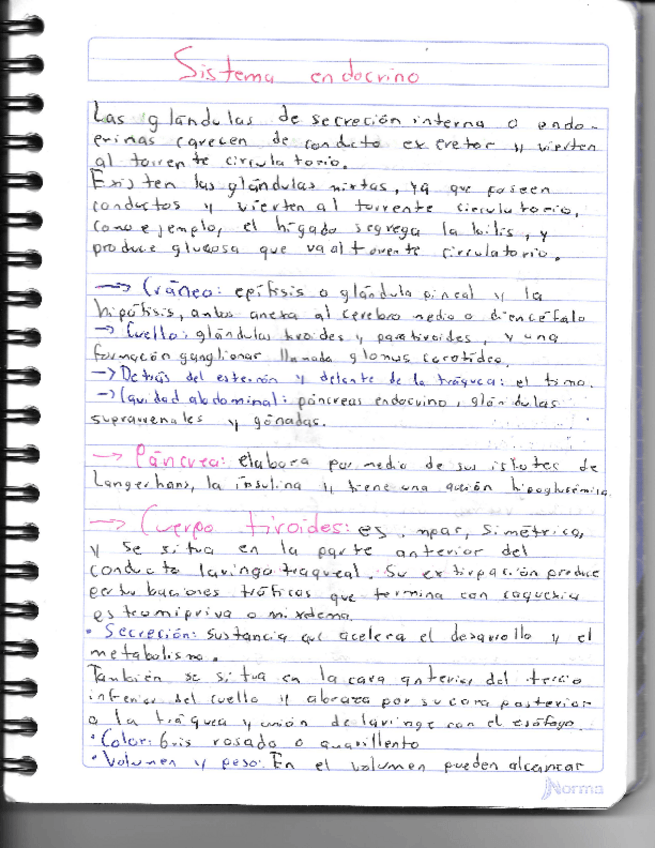 Sistema endocrino
Las glándulas de secreción interna o endo-
crinas carecen de conducto excretor y vierten
al torrente circulatorio.
Existen las glándulas mixtas, ya que poseen
conductos y vierten al torrente circulatorio,
como ejemplo, el hígado segrega la bilis, y
produce glucosa que va al torrente circulatorio.
→ Cráneo: epífisis o glándula pineal y la
hipófisis, antes anexa al cerebro medio o diencéfalo
→ Cuello: glándulas tiroides y paratiroides, y una
formación ganglionar llamada glomus carotídeo.
→ Detrás del esternón y delante de la tráquea: el timo.
→ Cavidad abdominal: páncreas endocrino, glándulas
suprarrenales y gónadas.
→ Páncrea: elabora por medio de sus islotes de
Langerhans, la insulina y tiene una acción hipoglucémica
→ Cuerpo tiroides: es impar, simétrico,
y se situa en la parte anterior del
conducto laringotraqueal. Su extirpación produce
perturbaciones tróficas que termina con caquexia
estrumipriva o mixdema.
• Secreción: Sustancia que acelera el desarrollo y el
metabolismo.
También se situa en la cara anterior del tercio
inferior del cuello y abraza por su cara posterior
a la tráquea y unión de laringe con el esófago.
• Color: Gris rosado o amarillento
• Volumen y peso: En el volumen pueden alcanzar
Norma